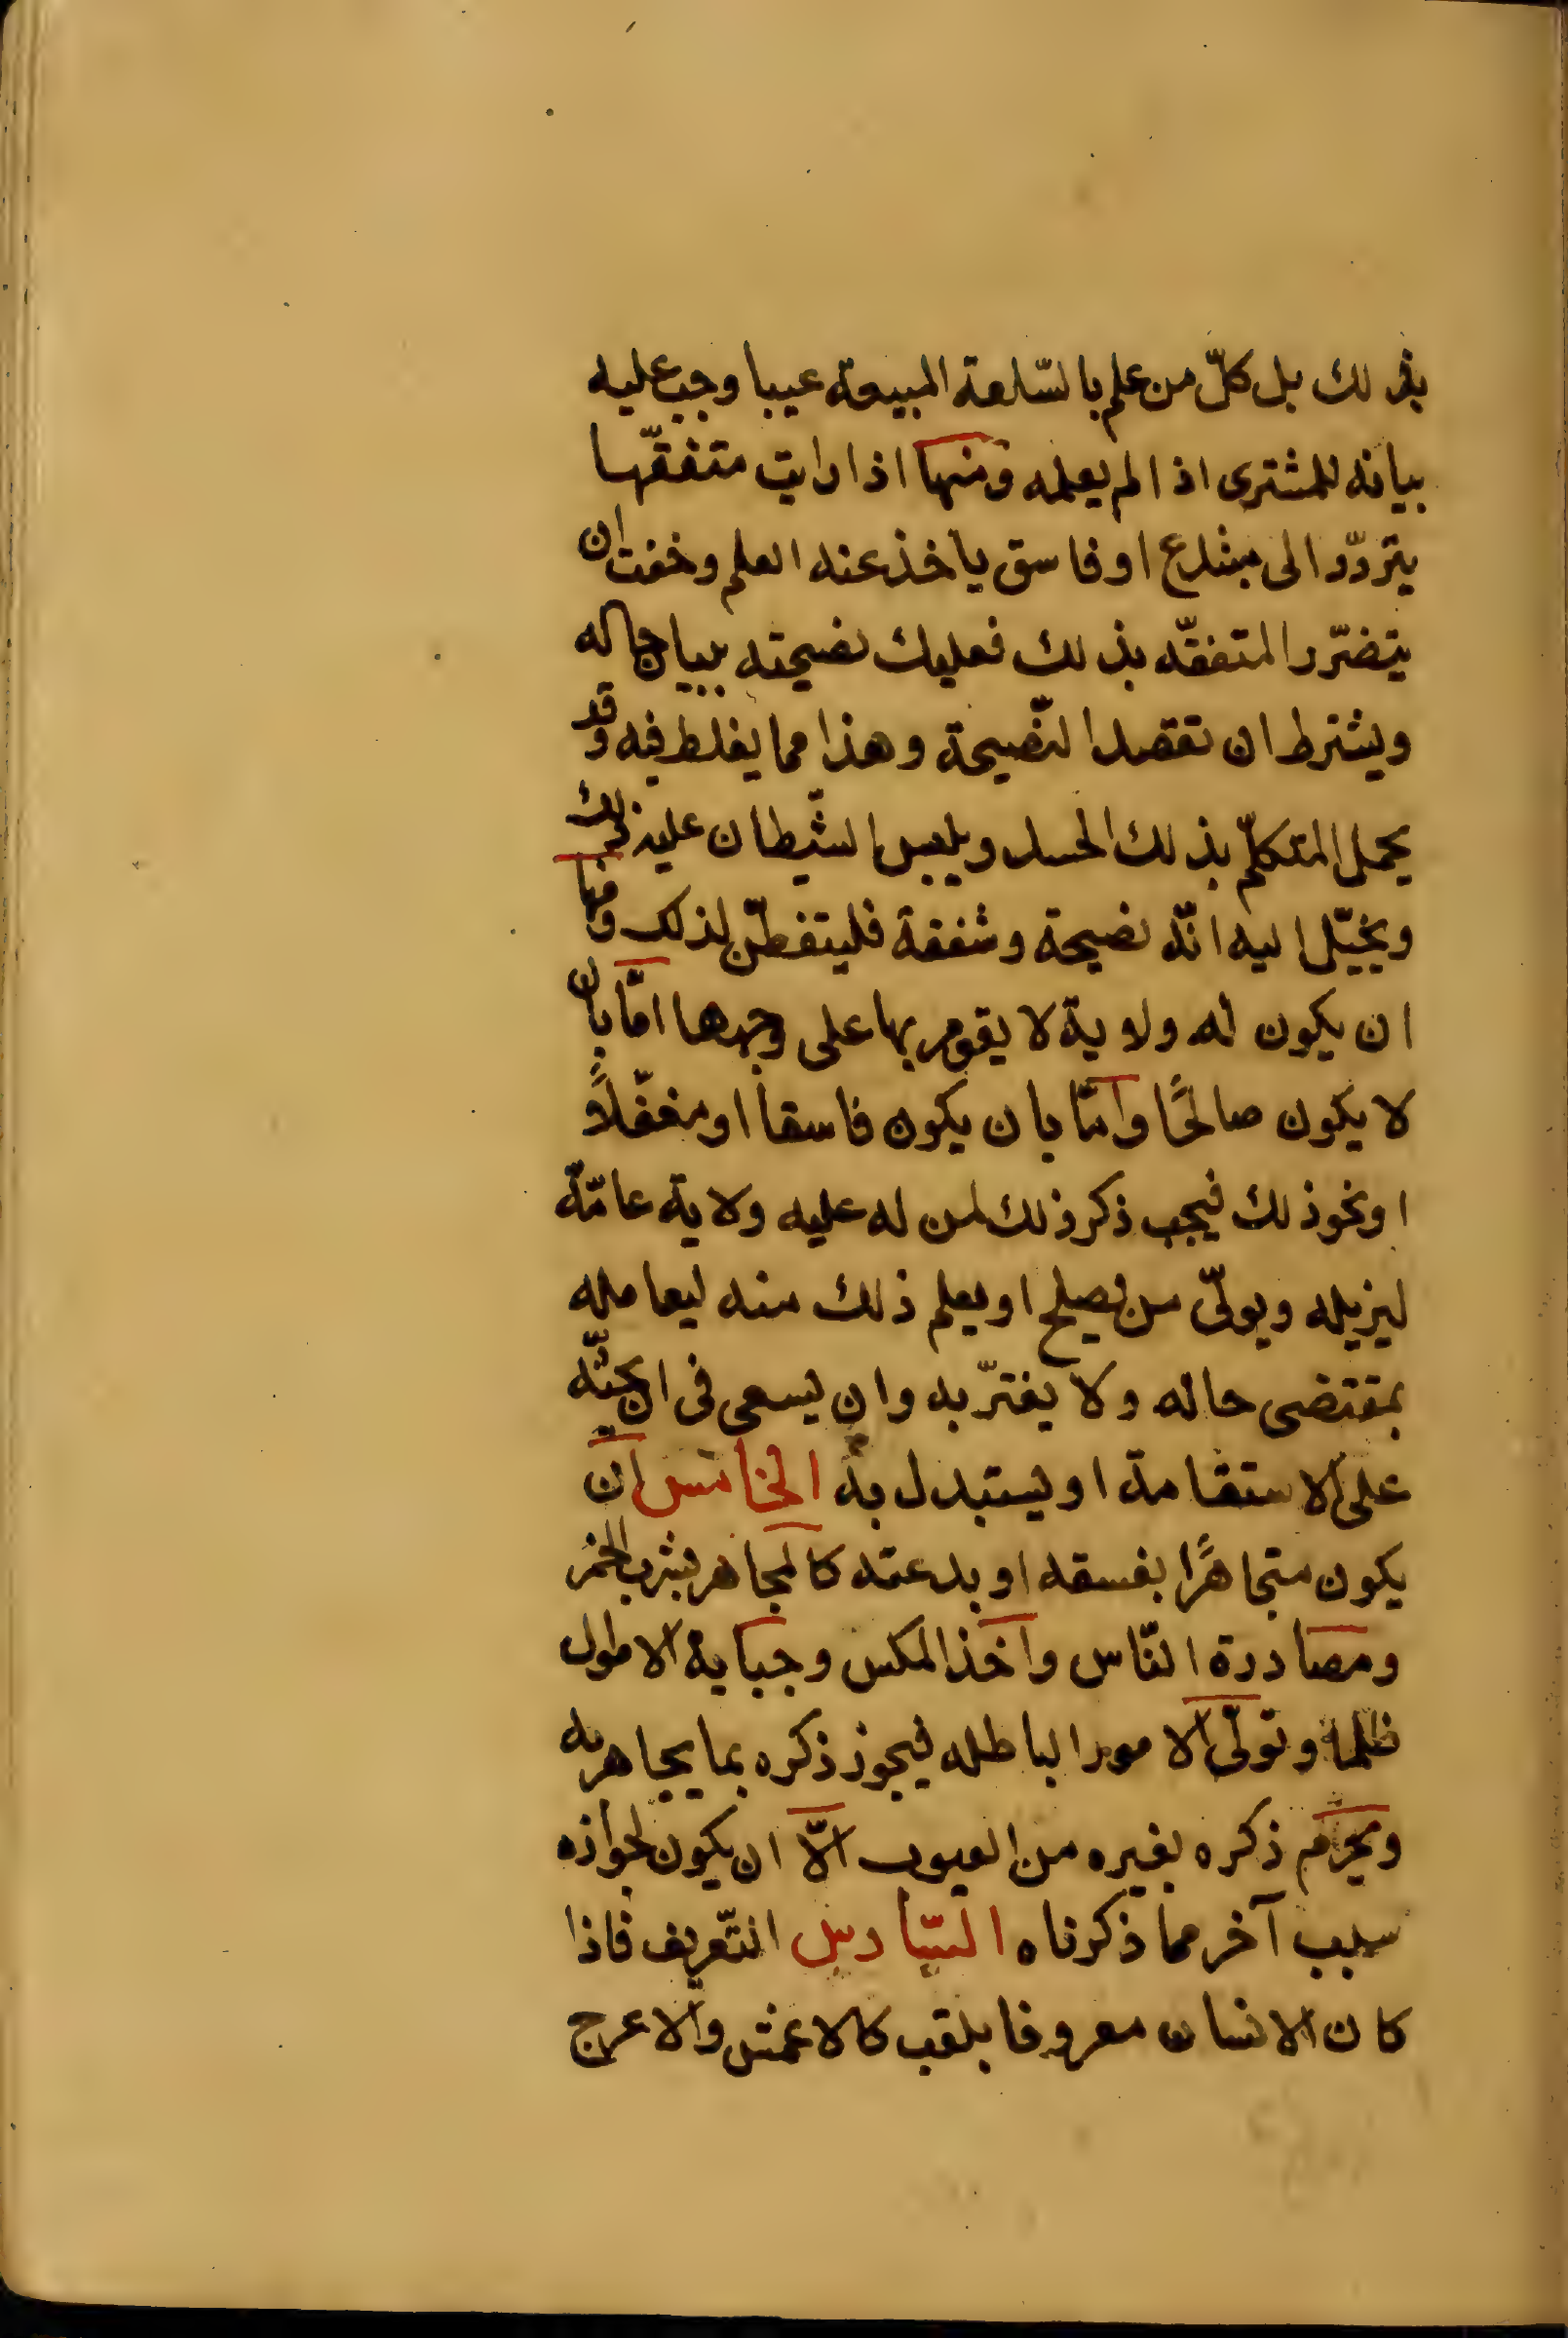 بذلك بل كلّ من علم بالسّلعة المبيعة عيبا وجب عليه
بيانه للمشترى اذا لم يعلمه ومنها اذا رايت متفقّها
يتردّد الى مبتدع او فاسق ياخذ عنه العلم وخفت ان
يتضرّر المتفقّه بذلك فعليك نصيحته ببيان حاله
ويشترط ان تقصد النّصيحة وهذا مما يغلط فيه وقد
يحمل المتكلّم بذلك الحسد ويلبس الشّيطان عليه ذلك
ويخيّل اليه انّه نصيحة وشفقة فليتفطّن لذلك ومنها
ان يكون له ولاية لا يقوم بها على وجهها امّا بان
لا يكون صالحًا وامّا بان يكون فاسقا او مغفّلًا و
او نحو ذلك فيجب ذكر ذلك لمن له عليه ولاية عامّة
ليزيله ويولّى من يصلح او يعلم ذلك منه ليعامله
بمقتضى حاله ولا يغترّ به وان يسعى فى ان يحثّه
على الاستقامة او يستبدل به الخامس ان
يكون متجاهرًا بفسقه او بدعته كالمجاهر بشرب الخمر
ومصادرة النّاس واخذ المكس وجباية الاموال
ظلما وتولّى الامور الباطله فيجوز ذكره بما يجاهر به
ويحرم ذكره بغيره من العيوب الّا ان يكون لجوازه
سبب آخر مما ذكرناه السّادس التّعريف فاذا
كان الانسان معروفا بلقب كالاعمش والاعرج